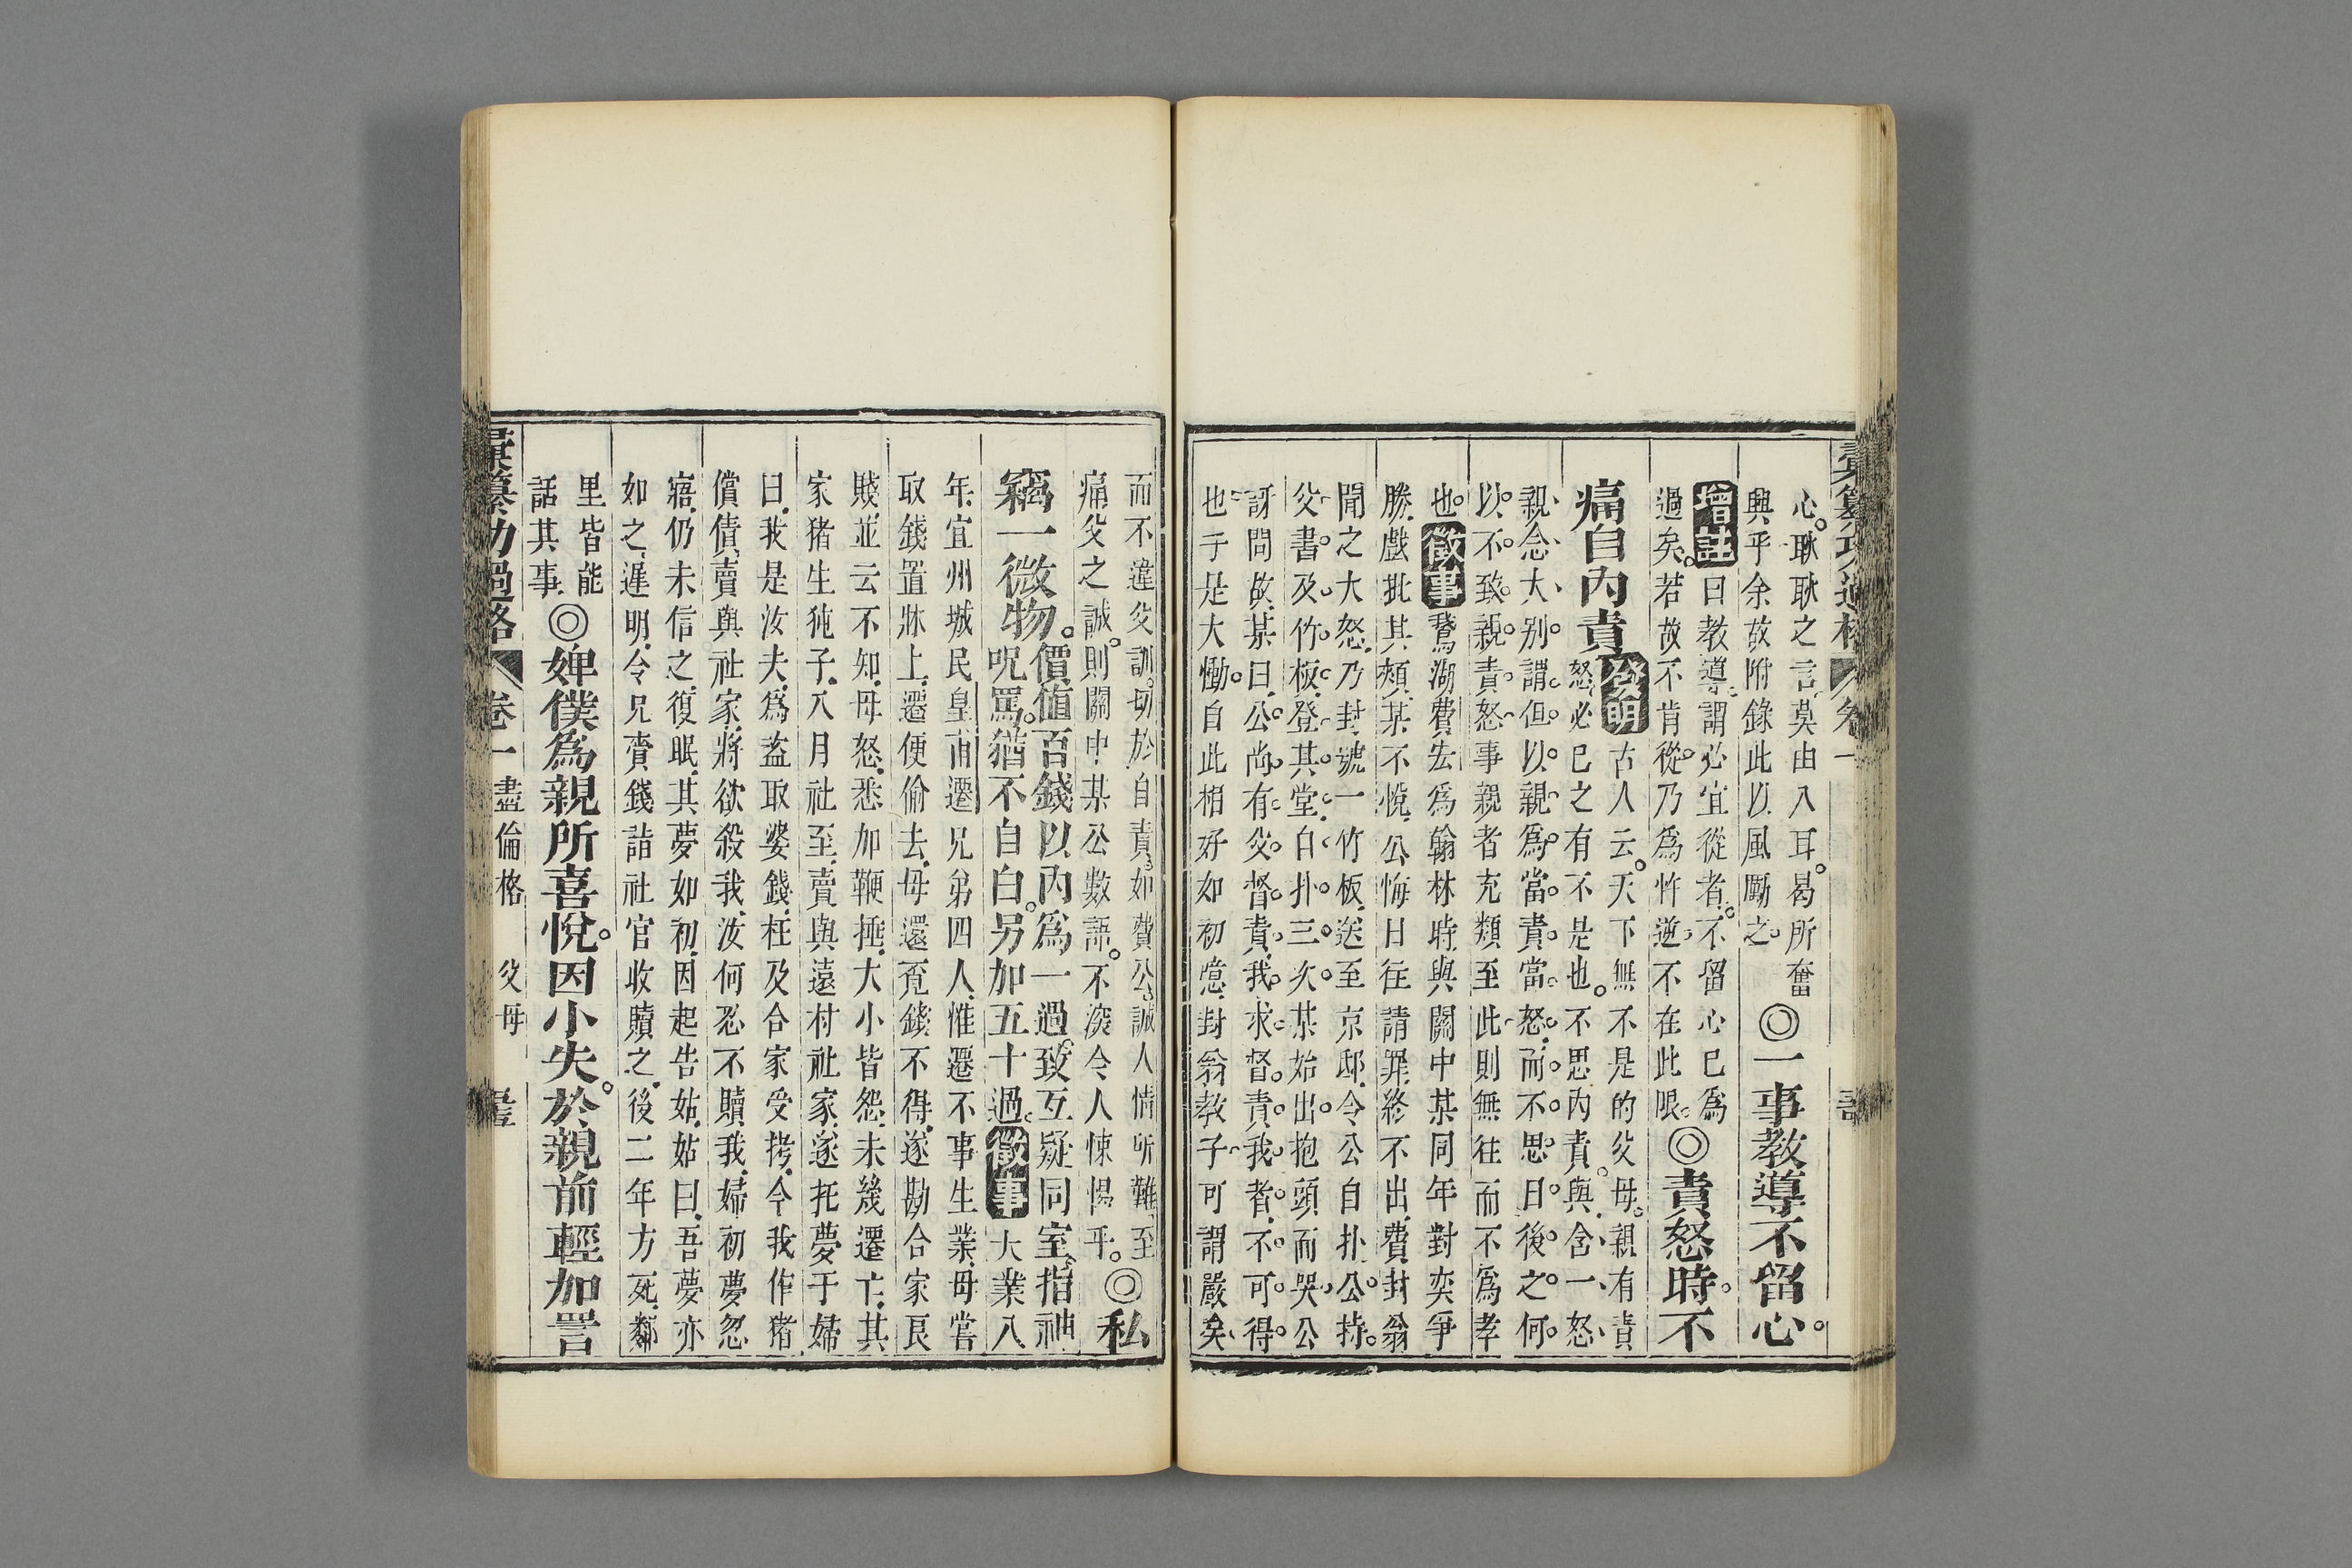 心。耿耿之言、莫由入耳。曷所奮
興乎余故附錄此以風勵之。
◎一事教導不留心。
增註曰教導。謂必宜從者。不留心已爲
過矣。若故不肯從。乃爲忤逆。不在此限。
◎責怒時。不
痛自內責
發明古人云。天下無不是的父母。親有責
怒、必已之有不是也。不思內責。與含一怒
親、念大、別謂。但以。親爲。當責。當怒。而不思。日後之。何
以。不致。親責。怒事親者充類至此則無往而不爲孝
也。徵事鵞湖費宏爲翰林時與關中某同年對奕爭
勝。戲批其頰某不悅。公悔日往請罪。終不出。費封翁
聞之大怒。乃封號一竹板。送至京邸。令公自扑。公。持。
父書。及竹板。登其堂。自扑三次。某始出。抱頭而哭公
訝問故。某曰。公尚有父督責。我求督責我者。不可得
也于是大慟。自此相好如初。噫。封翁教子可謂嚴矣
而不違父訓。切於自責。如費公。誠人情所難。至
痛父之誠。則關中某公數語。不深令人悚惕乎。
◎私
竊一微物。價值百錢以內爲一過。致互疑同室。指神
呪罵。猶不自白。另加五十過。徵事大業八
年。宜州城民皇甫遷兄弟四人。惟遷不事生業。母嘗
取錢置牀上。遷便偷去。母還覓錢不得。遂勘合家良
賤。並云不知。母怒。悉加鞭捶。大小皆怨。未幾遷亡。其
家猪生㹠子。八月社至。賣與遠村社家。遂托夢于婦
曰。我是汝夫。爲盜取婆錢。枉及合家受拷。今我作猪
償債。賣與社家。將欲殺我。汝何忍不贖我。婦初夢忽
寤。仍未信之。復眠。其夢如初。因起告姑。姑曰。吾夢亦
如之。遲明。令兄賫錢詣社官收贖之。後二年方死。鄰
里皆能
話其事
◎婢僕爲親所喜悅。因小失。於親前輕加詈
彙纂功過格 卷一 盡倫格 父母